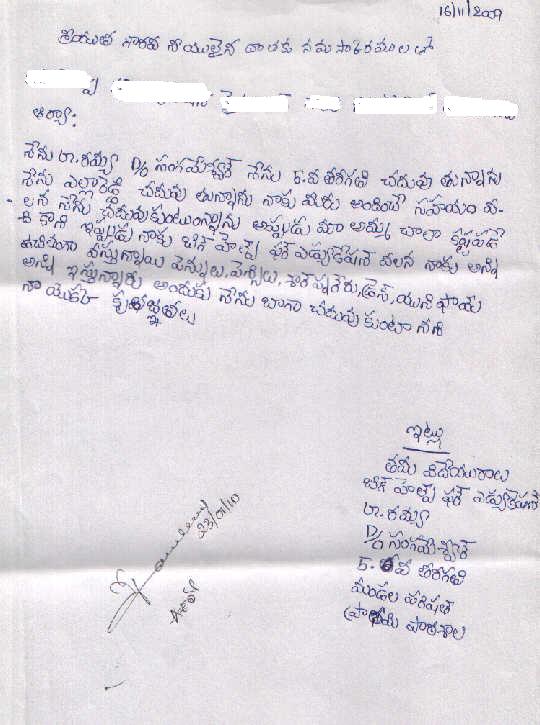 16/11/2009
శ్రీయుత గౌరవ నీయులైన దాతకు నమసాకారములతో
ఆర్యా:
నేను రా. రమ్య D/o సంగమేశ్వర్ నేను 5.వ తరగతి చదువు తున్నాను
నేను ఎల్లారెడ్డి చదువు తున్నాను నాకు మీరు అందించే సహయం వ-
లన నేను చదువుకుంటున్నాను అప్పుడు మా అమ్మ చాలా కష్టపడే
ది కాని ఇప్పుడు నాకు బిగ్ హెల్ప్ ఫర్ ఎడ్యుకేషన్ వలన నాకు అన్ని
ఉచితంగా వస్తున్నాయి పెన్నులు, పెన్సిలు, డ్రెస్, యుని ఫామ్
అన్ని ఇస్తున్నారు అందుకు నేను బాగా చదువు కుంటా నని
నా యొక్క కృతజ్ఞతలు
ఇట్లు
తమ విదేయురాలు
బిగ్ హెల్ప్ ఫర్ ఎడ్యుకేషన్
రా. రమ్య
D/o సంగమేశ్వర్
5. వ తరగతి
మండల పరిషత్
ప్రాథమి పాఠశాల
23/01/10